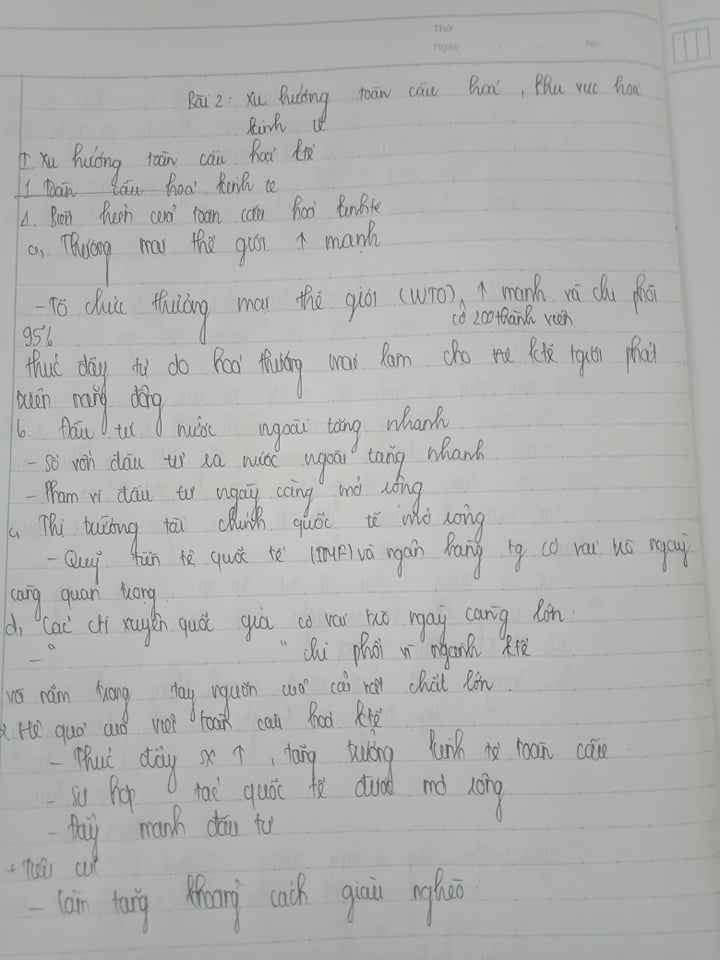 Thứ
Ngày No.
Bài 2: Xu hướng toàn cầu hoá, khu vực hoá
kinh tế
I Xu hướng toàn cầu hoá ktế
1 Toàn cầu hoá kinh tế
1. Biểu hiện của toàn cầu hoá kinh tế
a, Thương mại thế giới ↑ mạnh
- Tổ chức thương mại thế giới (WTO), ↑ mạnh và chi phối
có 200 thành viên
95%
thúc đẩy tự do hoá thương mại làm cho nền ktế tgiới phát
triển năng động
b. Đầu tư nước ngoài tăng nhanh
- Số vốn đầu tư ra nước ngoài tăng nhanh
- Phạm vi đầu tư ngày càng mở rộng
c, Thị trường tài chính quốc tế mở rộng
- Quỹ tiền tệ quốc tế (IMF) và ngân hàng tg có vai trò ngày
càng quan trọng
d, Các cti xuyên quốc gia có vai trò ngày càng lớn.
- " " chi phối ngành ktế
và nắm trong tay nguồn của cải vật chất lớn.
2. Hệ quả của việc toàn cầu hoá ktế
- Thúc đẩy sx ↑, tăng trưởng kinh tế toàn cầu
- Sự hợp tác quốc tế được mở rộng
- Đẩy mạnh đầu tư
+ Tiêu cực
- Làm tăng khoảng cách giàu nghèo